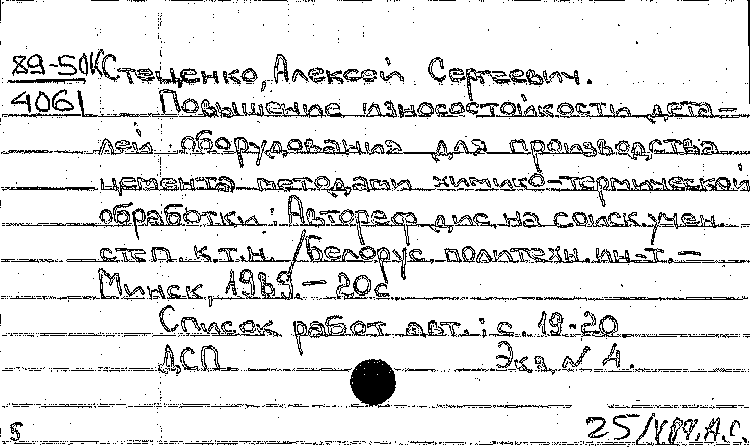 89-5ОК Стеценко, Алексей Сергеевич.
4061 Повышение износостойкости дета-
лей оборудования для производства
цемента методами химико-термической
обработки: Автореф дис. на соиск. учен.
степ. к.т.н. /Белорус. политехн. ин-т. –
Минск, 1989. – 20с.
Список работ авт.: с. 19-20
ДСП. Экз. N 4.
5